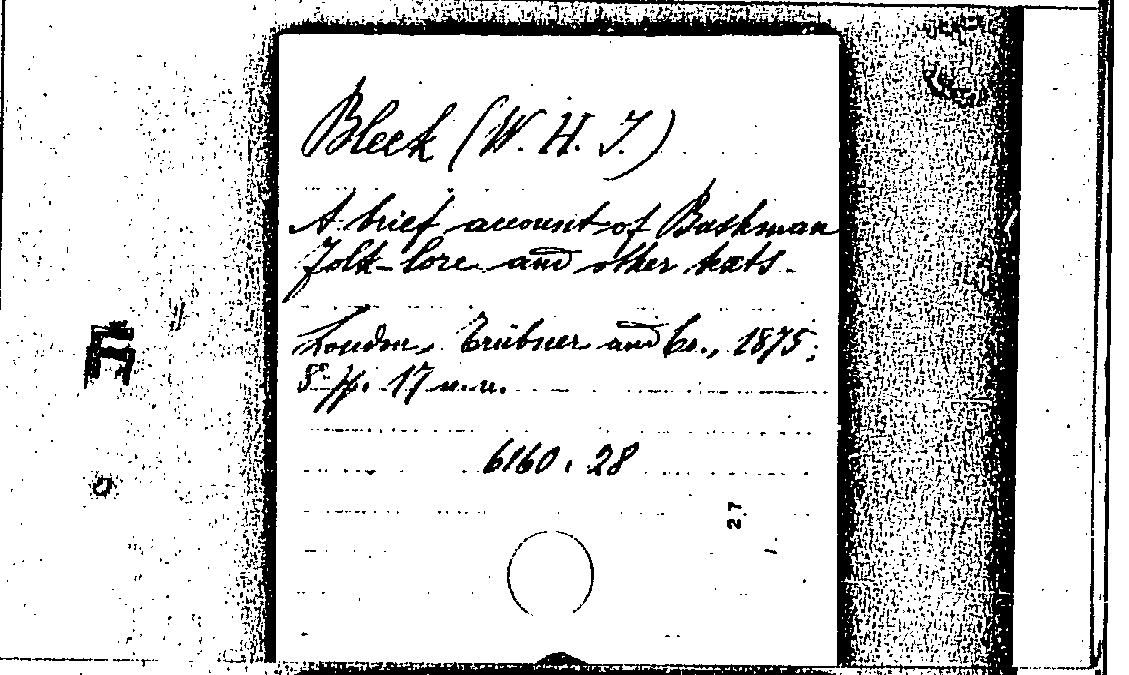 Bleek (W. H. I.)
A brief account of Bushman
folk-lore and other texts.
London, Trübner and Co., 1875;
8° pp. 17 u.u.
6160.28
27